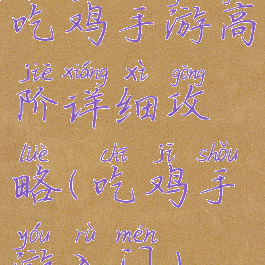 吃鸡手游高
jiē xiáng xì gōng
阶详细攻
lüè chī jī shǒu
略(吃鸡手
yóu rù mén
游入门)